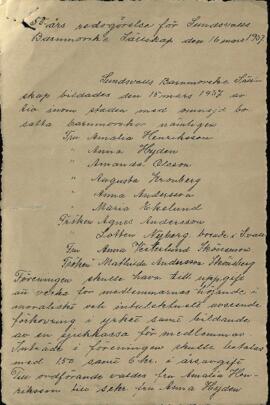 50 års redogörelse för Sundsvalls
Barnmorske Sällskap den 16 mars 1957
Sundsvalls Barnmorske Säll-
skap bildades den 15 mars 1957 av
tio inom staden med omnejd bo
satta barnmorskor nämligen
Fru Amalia Henriksson
" Anna Hyden
" Amanda Olsson
" Augusta Kronberg
" Anna Andersson
" Maria Ekelund
Fröken Agnes Andersson
Lotten Nyberg
Fru Anna
Fröken Mathilda Andersson
Föreningen skulle hava till uppgift
att verka för medlemmarnas höjande i
moraliskt och intelektuelt avseende
förkovring i yrket samt bildande
av en sjukkassa för medlemmar
Inträde i föreningen skulle betalas
med 1.50 samt 6 kr. i årsavgift
Till ordförande valdes fru Amalia Hen-
riksson till sekr. fru Anna Hyden